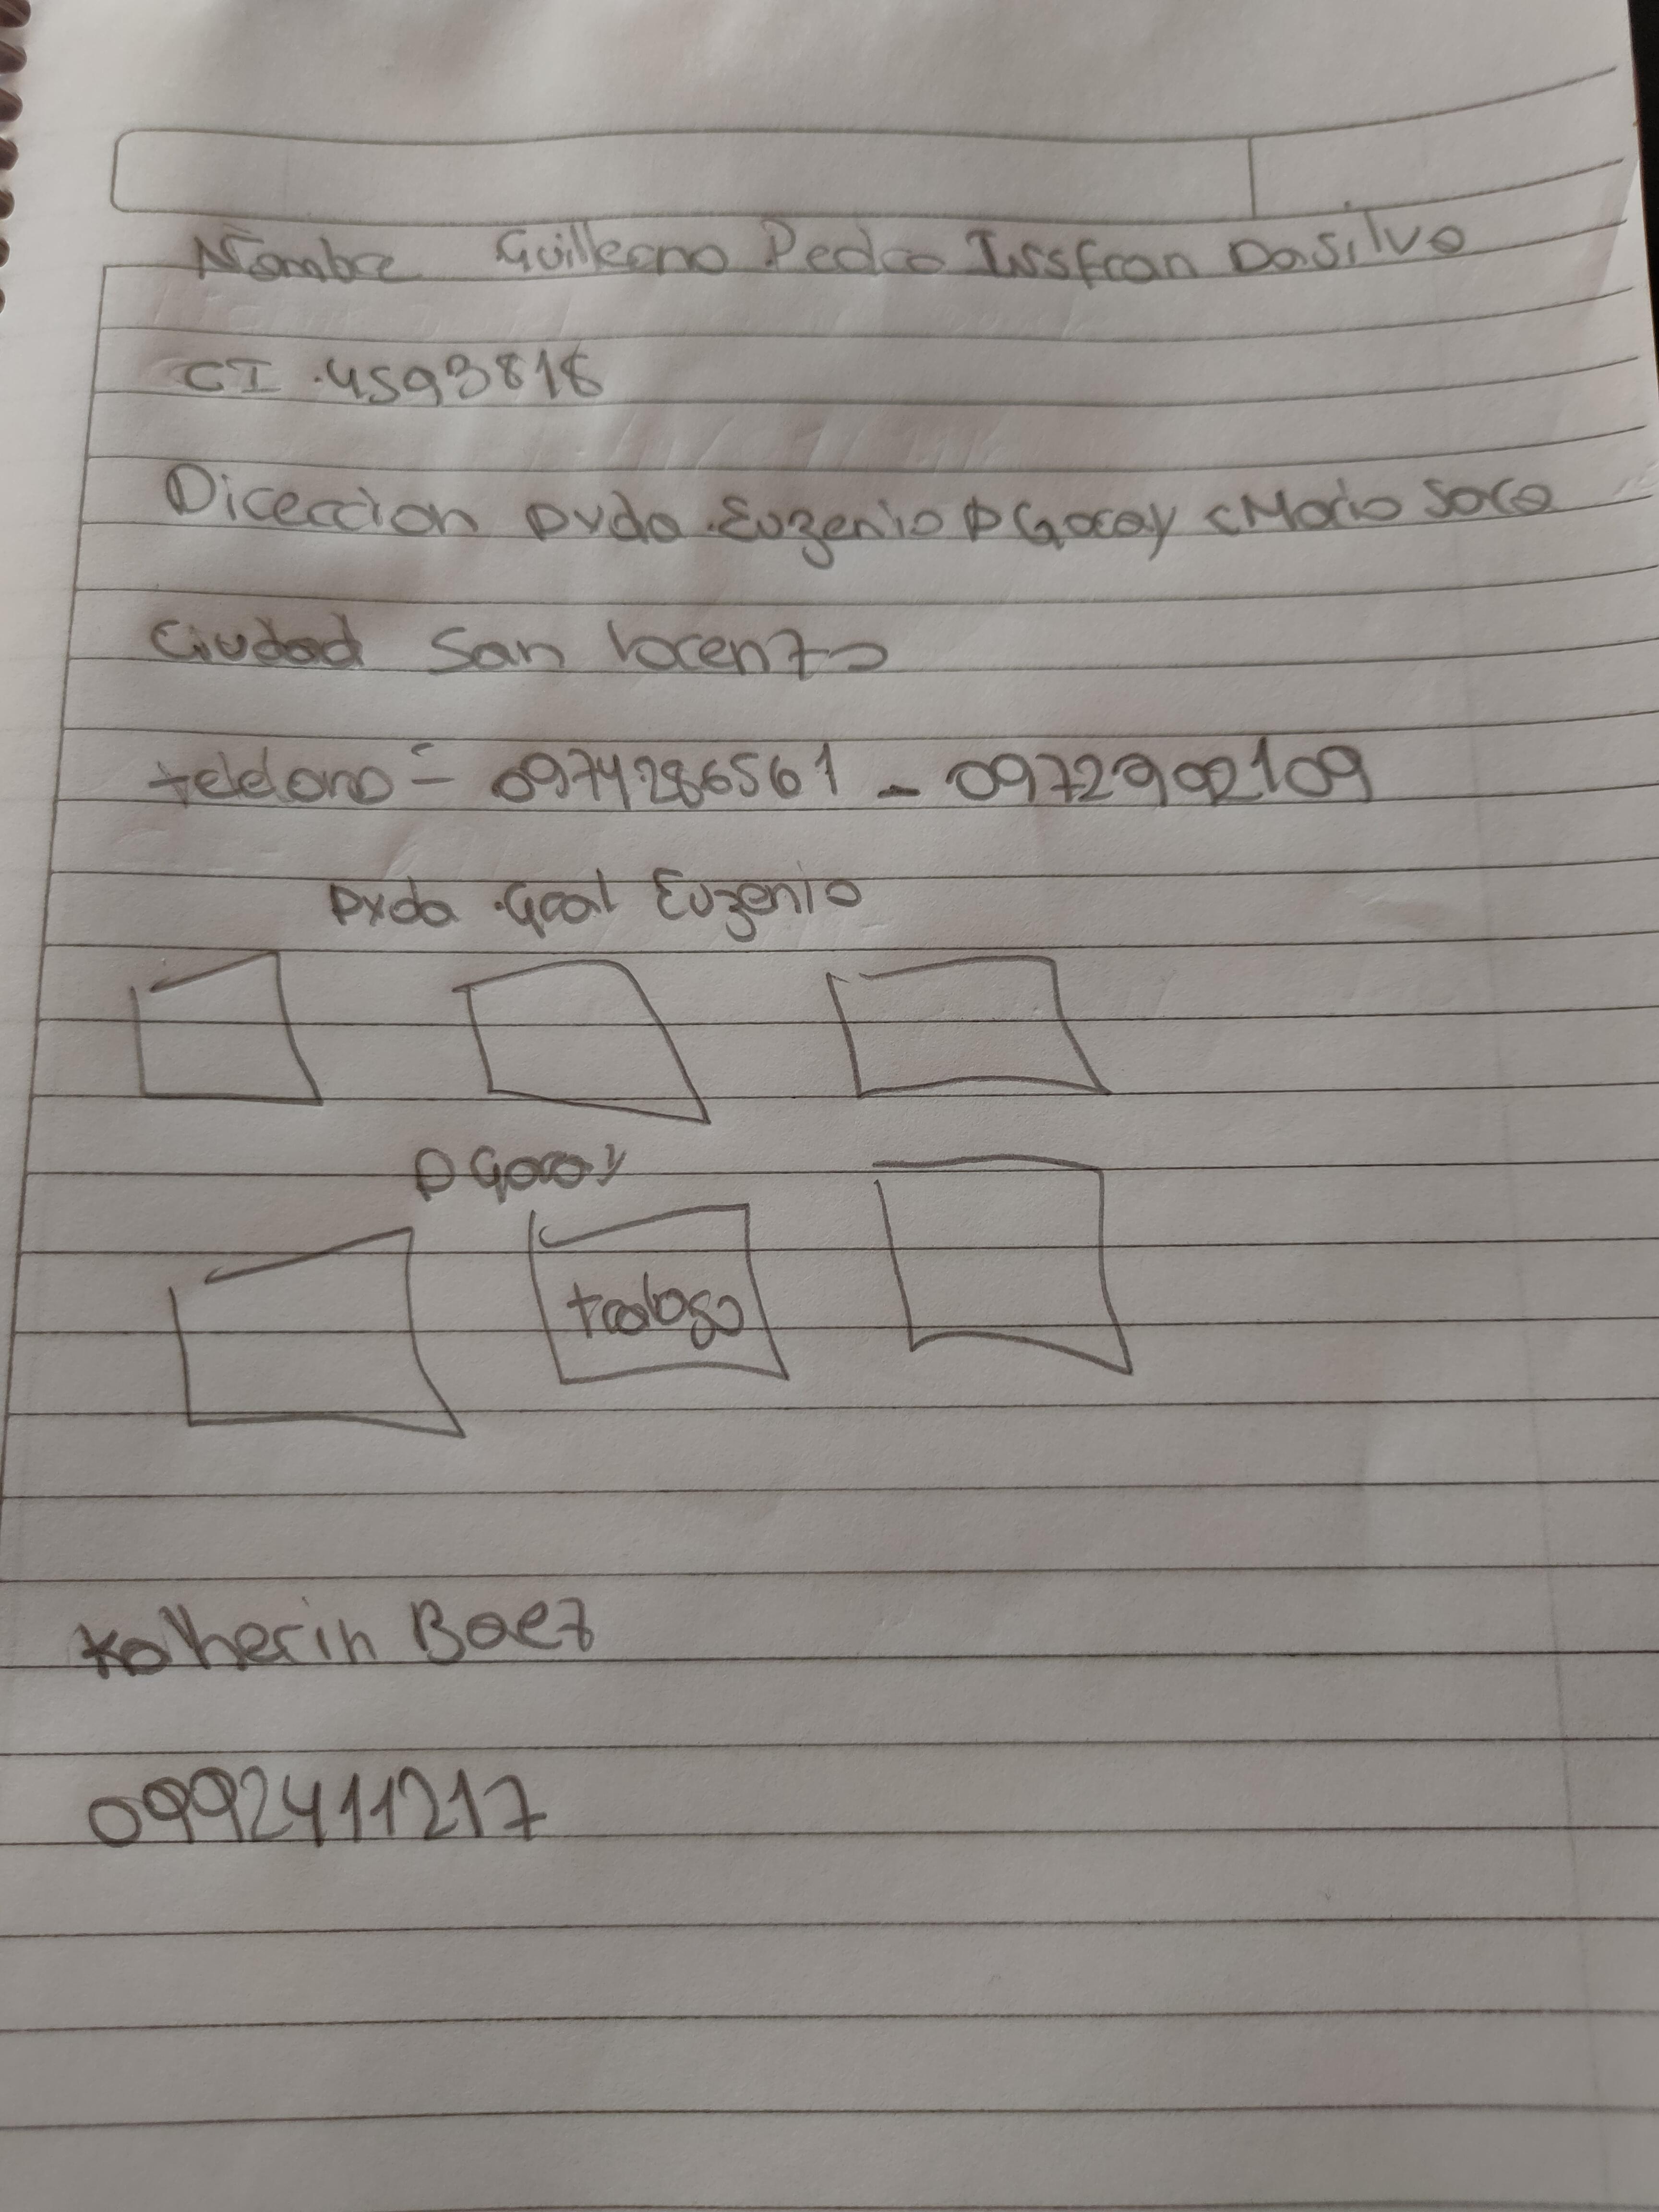 Nombre Guillermo Pedro Inssfran Dasilva
CI. 4593818
Direccion Avda. Eugenio A Garay c Maria Sara
Ciudad San lorenzo
telefono = 0974286561 - 0972902109
Avda. Gral Eugenio
A Garay
trabajo
Katherin Baez
0992411217